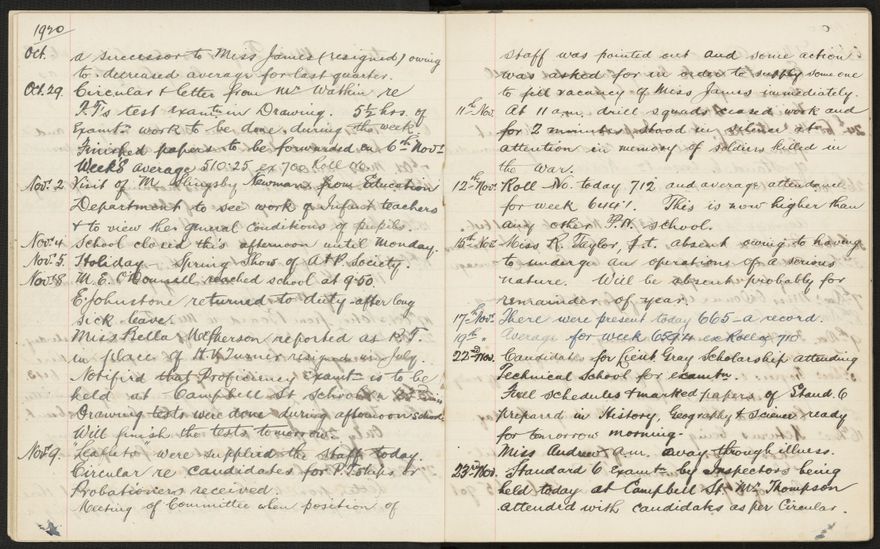 1920
Oct. a successor to Miss James (resigned) owing
to decreased average for last quarter.
Oct. 29 Circular & letter from Mr Watkin re
P.T's test examtn in Drawing. 5½ hrs. of
Examtn work to be done during the week.
Finished papers to be forwarded on 6th Novr
Week's average 510.25 ex 700 Roll No.
Nov. 2 Visit of M. Slingsby Newman from Education
Department to see work of Infant teachers
& to view the general conditions of pupils.
Nov. 4 School closed this afternoon until Monday.
Nov. 5 Holiday Spring Show of A & P. Society.
Nov. 8 M. E. O'Donnell reached school at 9.50.
E. Johnstone returned to duty after long
sick leave.
Miss Bella McPherson reported as P.T.
in place of H. Turner resigned in July.
Notified that Proficiency Examtn is to be
held at Campbell St School
Drawing tests were done during afternoon
Will finish the tests tomorrow.
Nov. 9. were supplied the staff today.
Circular re candidates for P.T. ships or
Probationers received.
Meeting of Committee when position of
staff was pointed out and some action
was asked for in order to supply someone
to fill vacancy of Miss James immediately.
11th Nov. At 11 a.m. drill squads ceased work and
for 2 minutes stood in silence at
attention in memory of soldiers killed in
the war.
12th Nov. Roll No. today 712 and average attendance
for week 644.1. This is now higher than
any other P.N. school.
15th Nov. Miss K. Taylor, absent owing to having
to undergo an operation of a serious
nature. Will be absent probably for
remainder of year.
17th Nov. There were present today 665 - a record.
19th " Average for week ex Roll of 710
22nd Nov. Candidates for Lieut Gray Scholarship attending
Technical School for Examtn.
Five schedules & marked papers of Stand. 6
prepared in History, Geography & Science ready
for tomorrow morning.
Miss Andrew a.m. away through illness.
23rd Nov. Standard 6 Examtn by Inspectors being
held today at Campbell St. Mr Thompson
attended with candidates as per Circular.